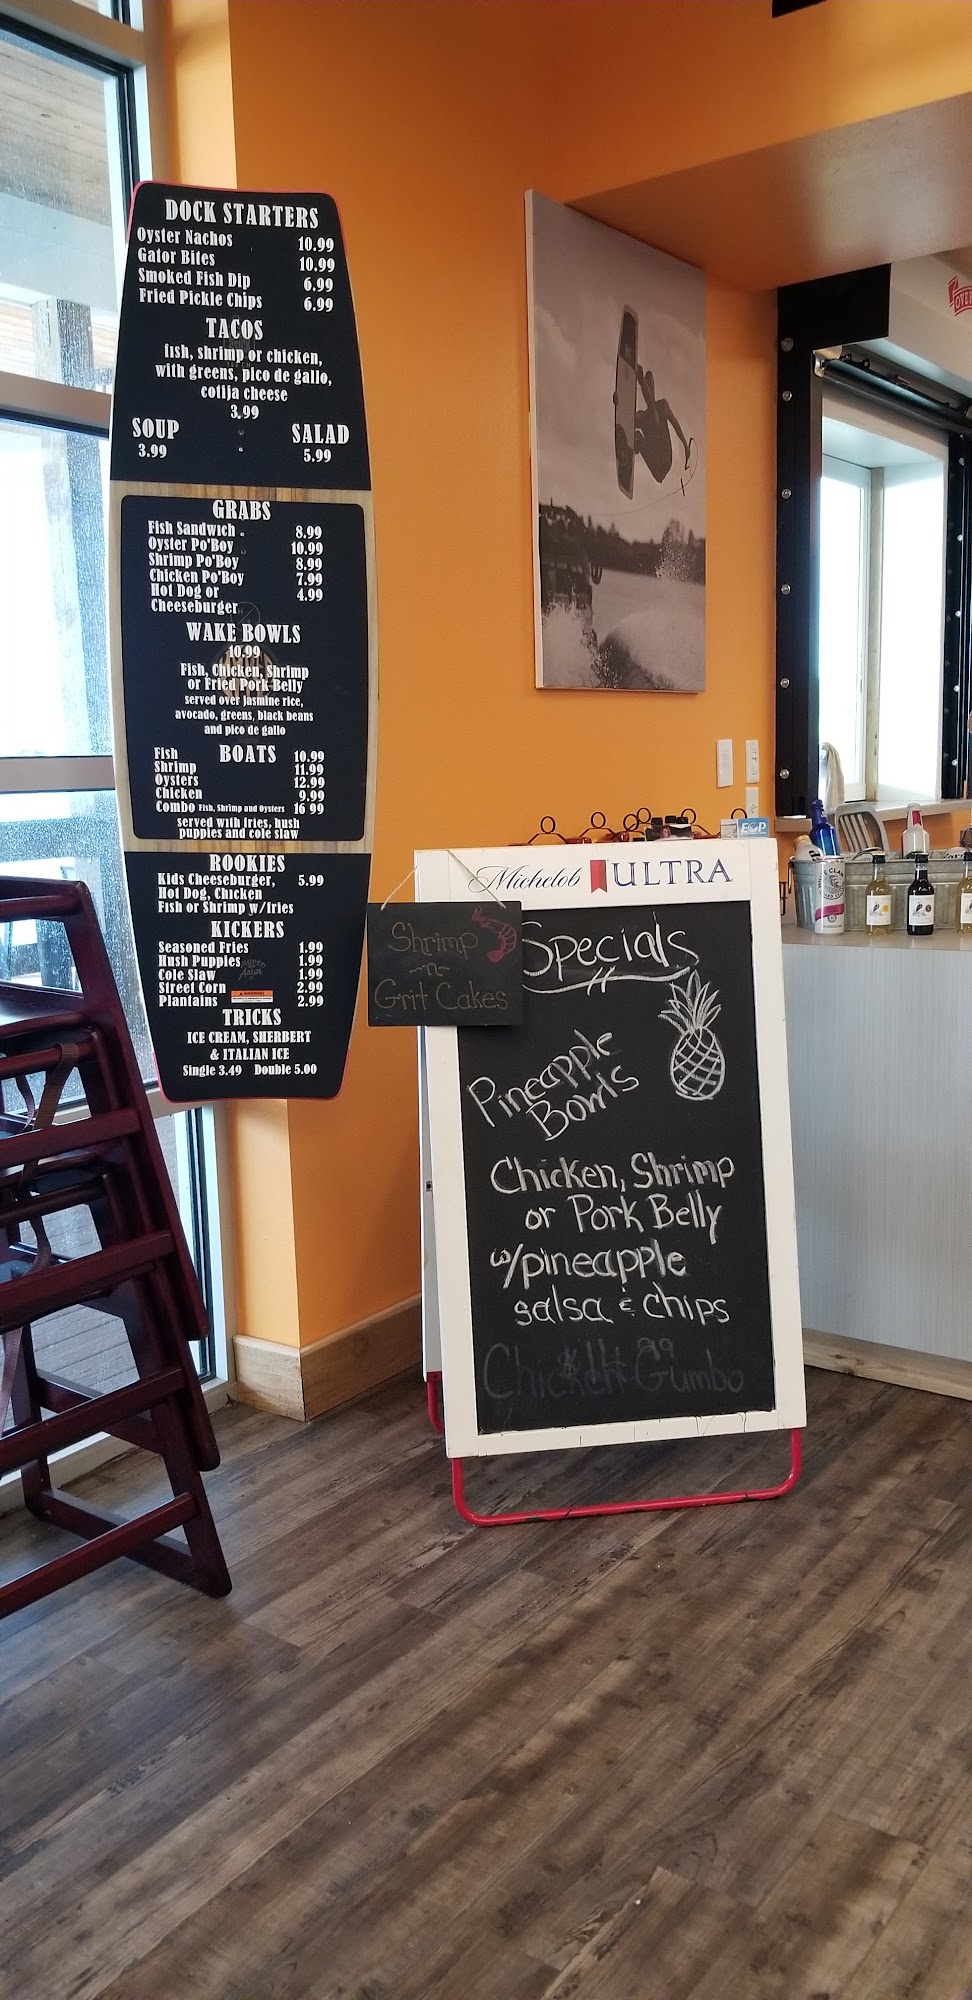 DOCK STARTERS
Oyster Nachos 10.99
Gator Bites 10.99
Smoked Fish Dip 6.99
Fried Pickle Chips 6.99
TACOS
fish, shrimp or chicken,
with greens, pico de gallo,
cotija cheese
3.99
SOUP SALAD
3.99 5.99
GRABS
Fish Sandwich 8.99
Oyster Po'Boy 10.99
Shrimp Po'Boy 8.99
Chicken Po'Boy 7.99
Hot Dog or 4.99
Cheeseburger
WAKE BOWLS
10.99
Fish, Chicken, Shrimp
or Fried Pork Belly
served over Jasmine rice,
avocado, greens, black beans
and pico de gallo
BOATS
Fish 10.99
Shrimp 11.99
Oysters 12.99
Chicken 9.99
Combo Fish, Shrimp and Oysters 16 99
served with fries, hush
puppies and cole slaw
ROOKIES
Kids Cheeseburger, 5.99
Hot Dog, Chicken
Fish or Shrimp w/fries
KICKERS
Seasoned Fries 1.99
Hush Puppies 1.99
Cole Slaw 1.99
Street Corn 2.99
Plantains 2.99
WARNING
TRICKS
ICE CREAM, SHERBERT
& ITALIAN ICE
Single 3.49 Double 5.00
Michelob ULTRA
Shrimp
~n~
Grit Cakes
Specials
Pineapple
Bowls
Chicken, Shrimp
or Pork Belly
w/pineapple
salsa & chips
Chicken Gumbo
WHITE CLAW